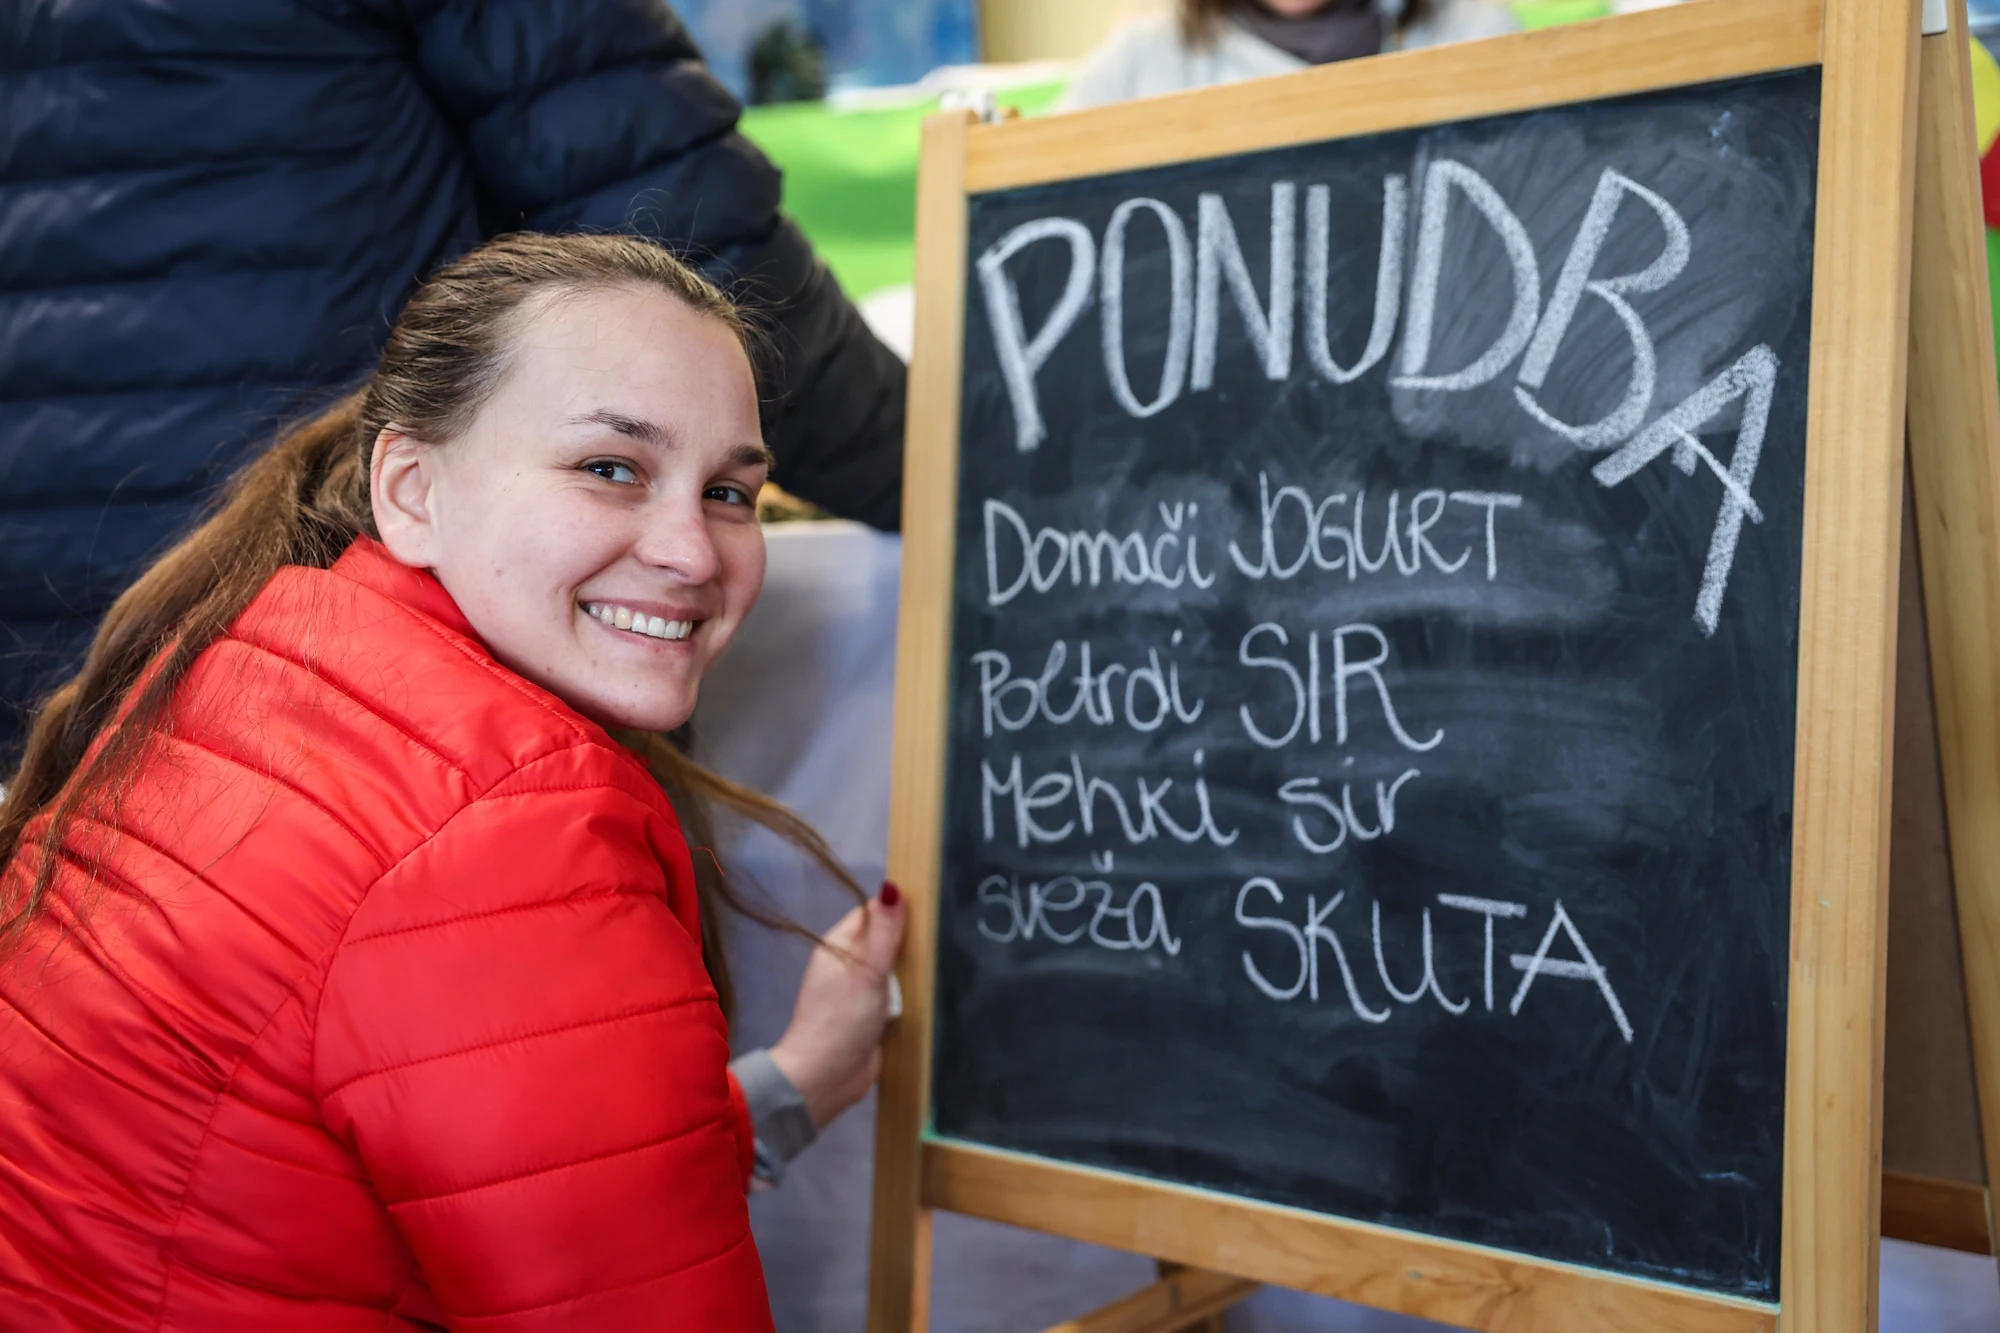 PONUDBA
Domači JOGURT
Poltrdi SIR
Mehki sir
sveža SKUTA